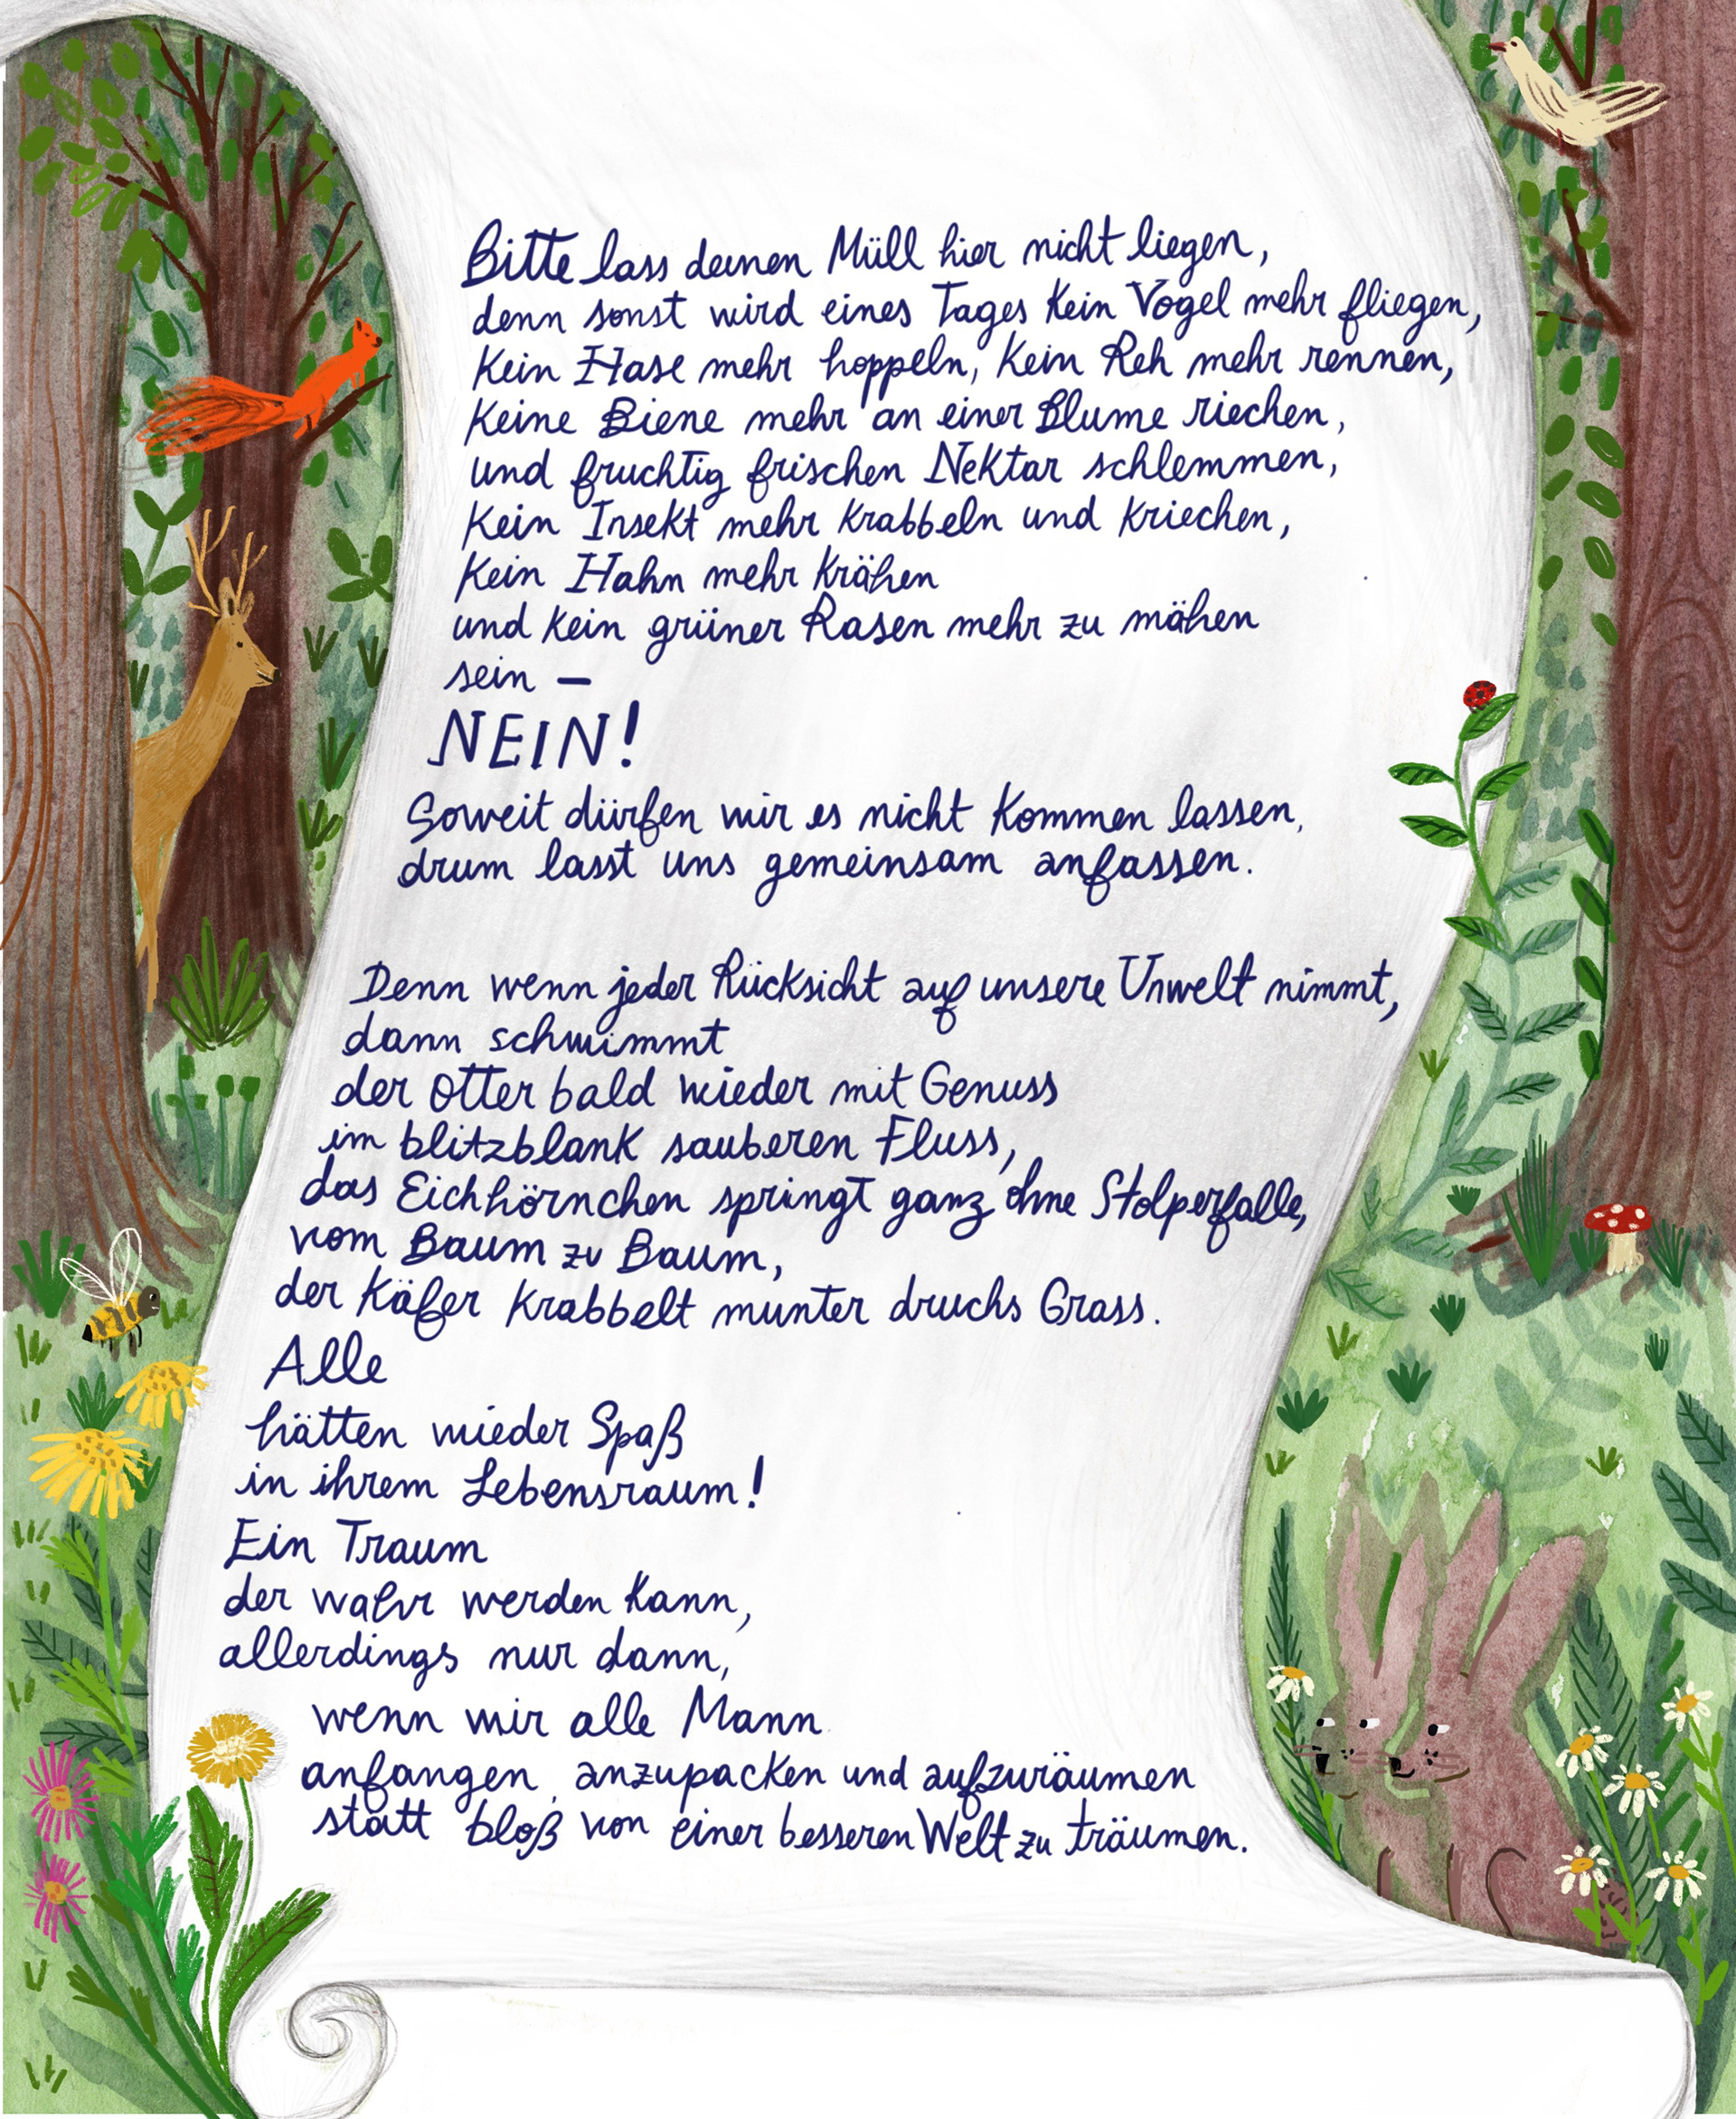 Bitte lass deinen Müll hier nicht liegen,
denn sonst wird eines Tages kein Vogel mehr fliegen,
kein Hase mehr hoppeln, kein Reh mehr rennen,
keine Biene mehr an einer Blume riechen,
und fruchtig frischen Nektar schlemmen,
kein Insekt mehr krabbeln und kriechen,
kein Hahn mehr krähen
und kein grüner Rasen mehr zu mähen
sein –
NEIN!
Soweit dürfen wir es nicht kommen lassen,
drum lasst uns gemeinsam anfassen.
Denn wenn jeder Rücksicht auf unsere Unwelt nimmt,
dann schwimmt
der Otter bald wieder mit Genuss
im blitzblank sauberen Fluss,
das Eichhörnchen springt ganz ohne Stolperfalle,
vom Baum zu Baum,
der Käfer krabbelt munter druchs Grass.
Alle
hätten wieder Spaß
in ihrem Lebensraum!
Ein Traum
der wahr werden kann,
allerdings nur dann,
wenn wir alle Mann
anfangen, anzupacken und aufzuräumen
statt bloß von einer besseren Welt zu träumen.